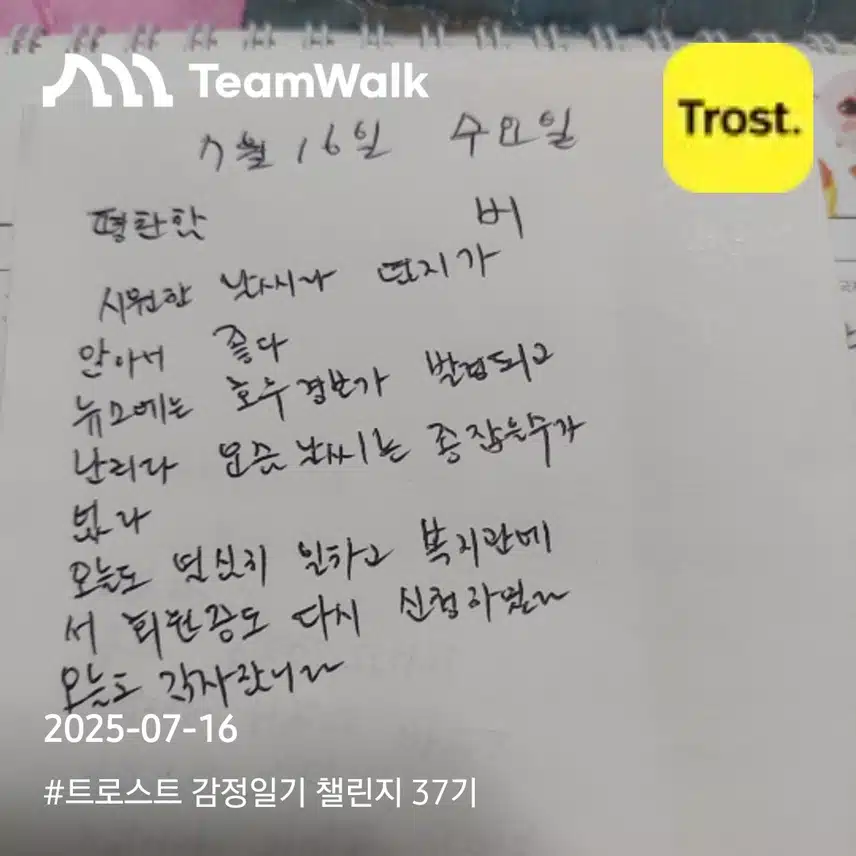 TeamWalk
Trost.
7월 16일 수요일
평탄한 비
시원한 날씨다
않아서 좋다
뉴스에는 호우경보가 발령되고
난리다 요즘 날씨는 종잡을수가
없다
오늘도 열심히 일하고 복지관에
서 회원증도 다시 신청하였다
오늘도
2025-07-16
#트로스트 감정일기 챌린지 37기